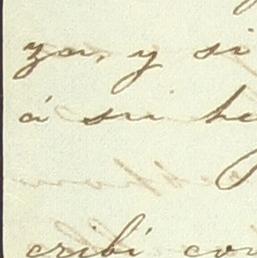 za, y si
á su he
cribí con